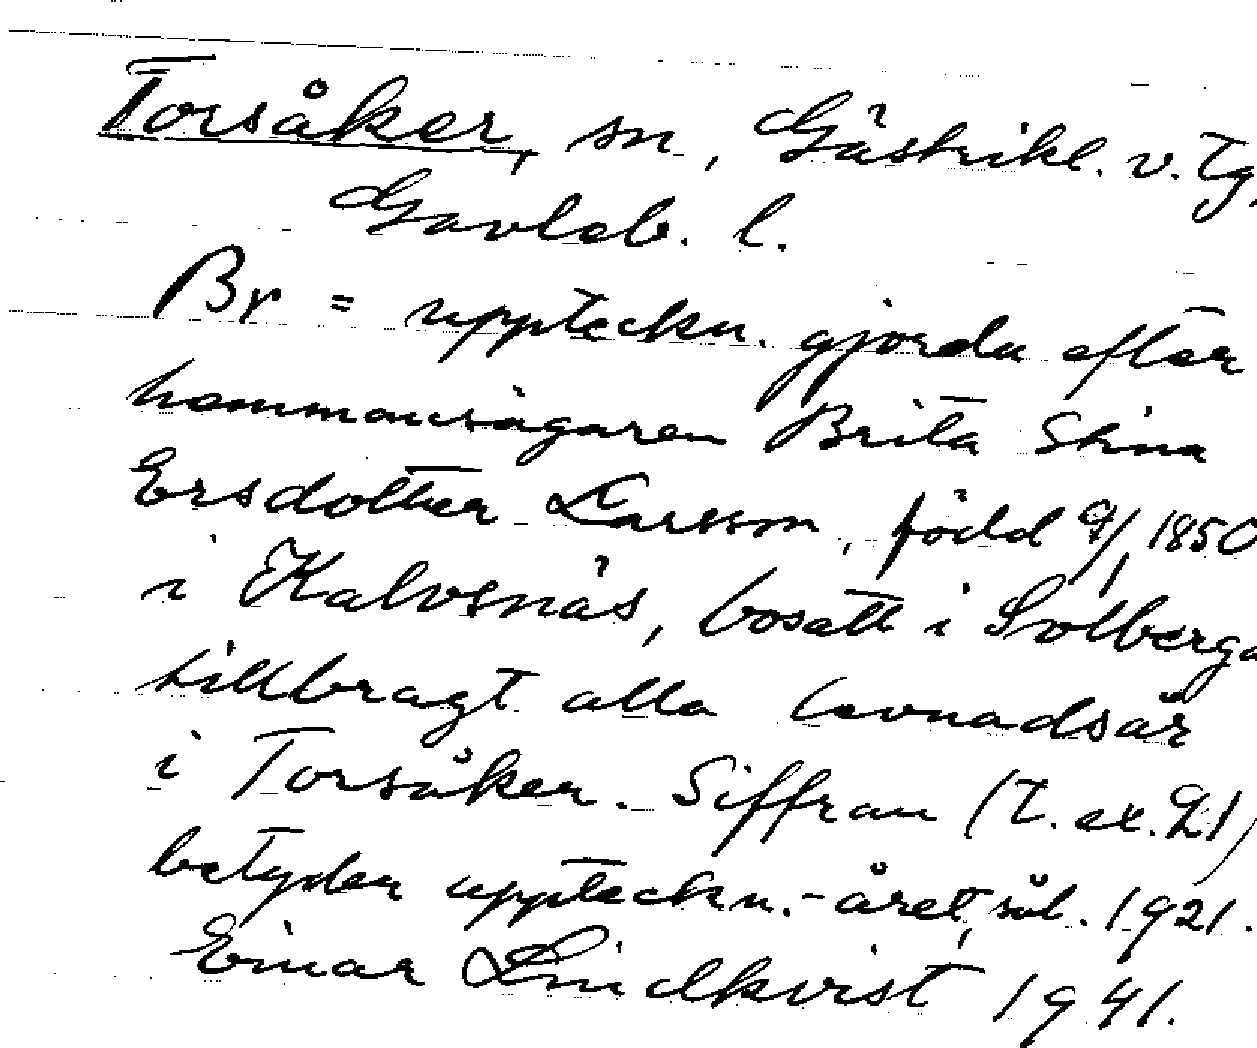 Torsåker, sn, Gästrikl. v. Tg.
Gävleb. l.
Br = uppteckn. gjorda efter
hemmansägaren Brita Stina
Ersdotter Larsson, född 9/1 1850
i Kalvsnäs, bosatt i Solberga
tillbragt alla levnadsår
i Torsåker. Siffran (t. ex. 21)
betyder uppteckn.-året, sål. 1921.
Einar Lindkvist 1941.